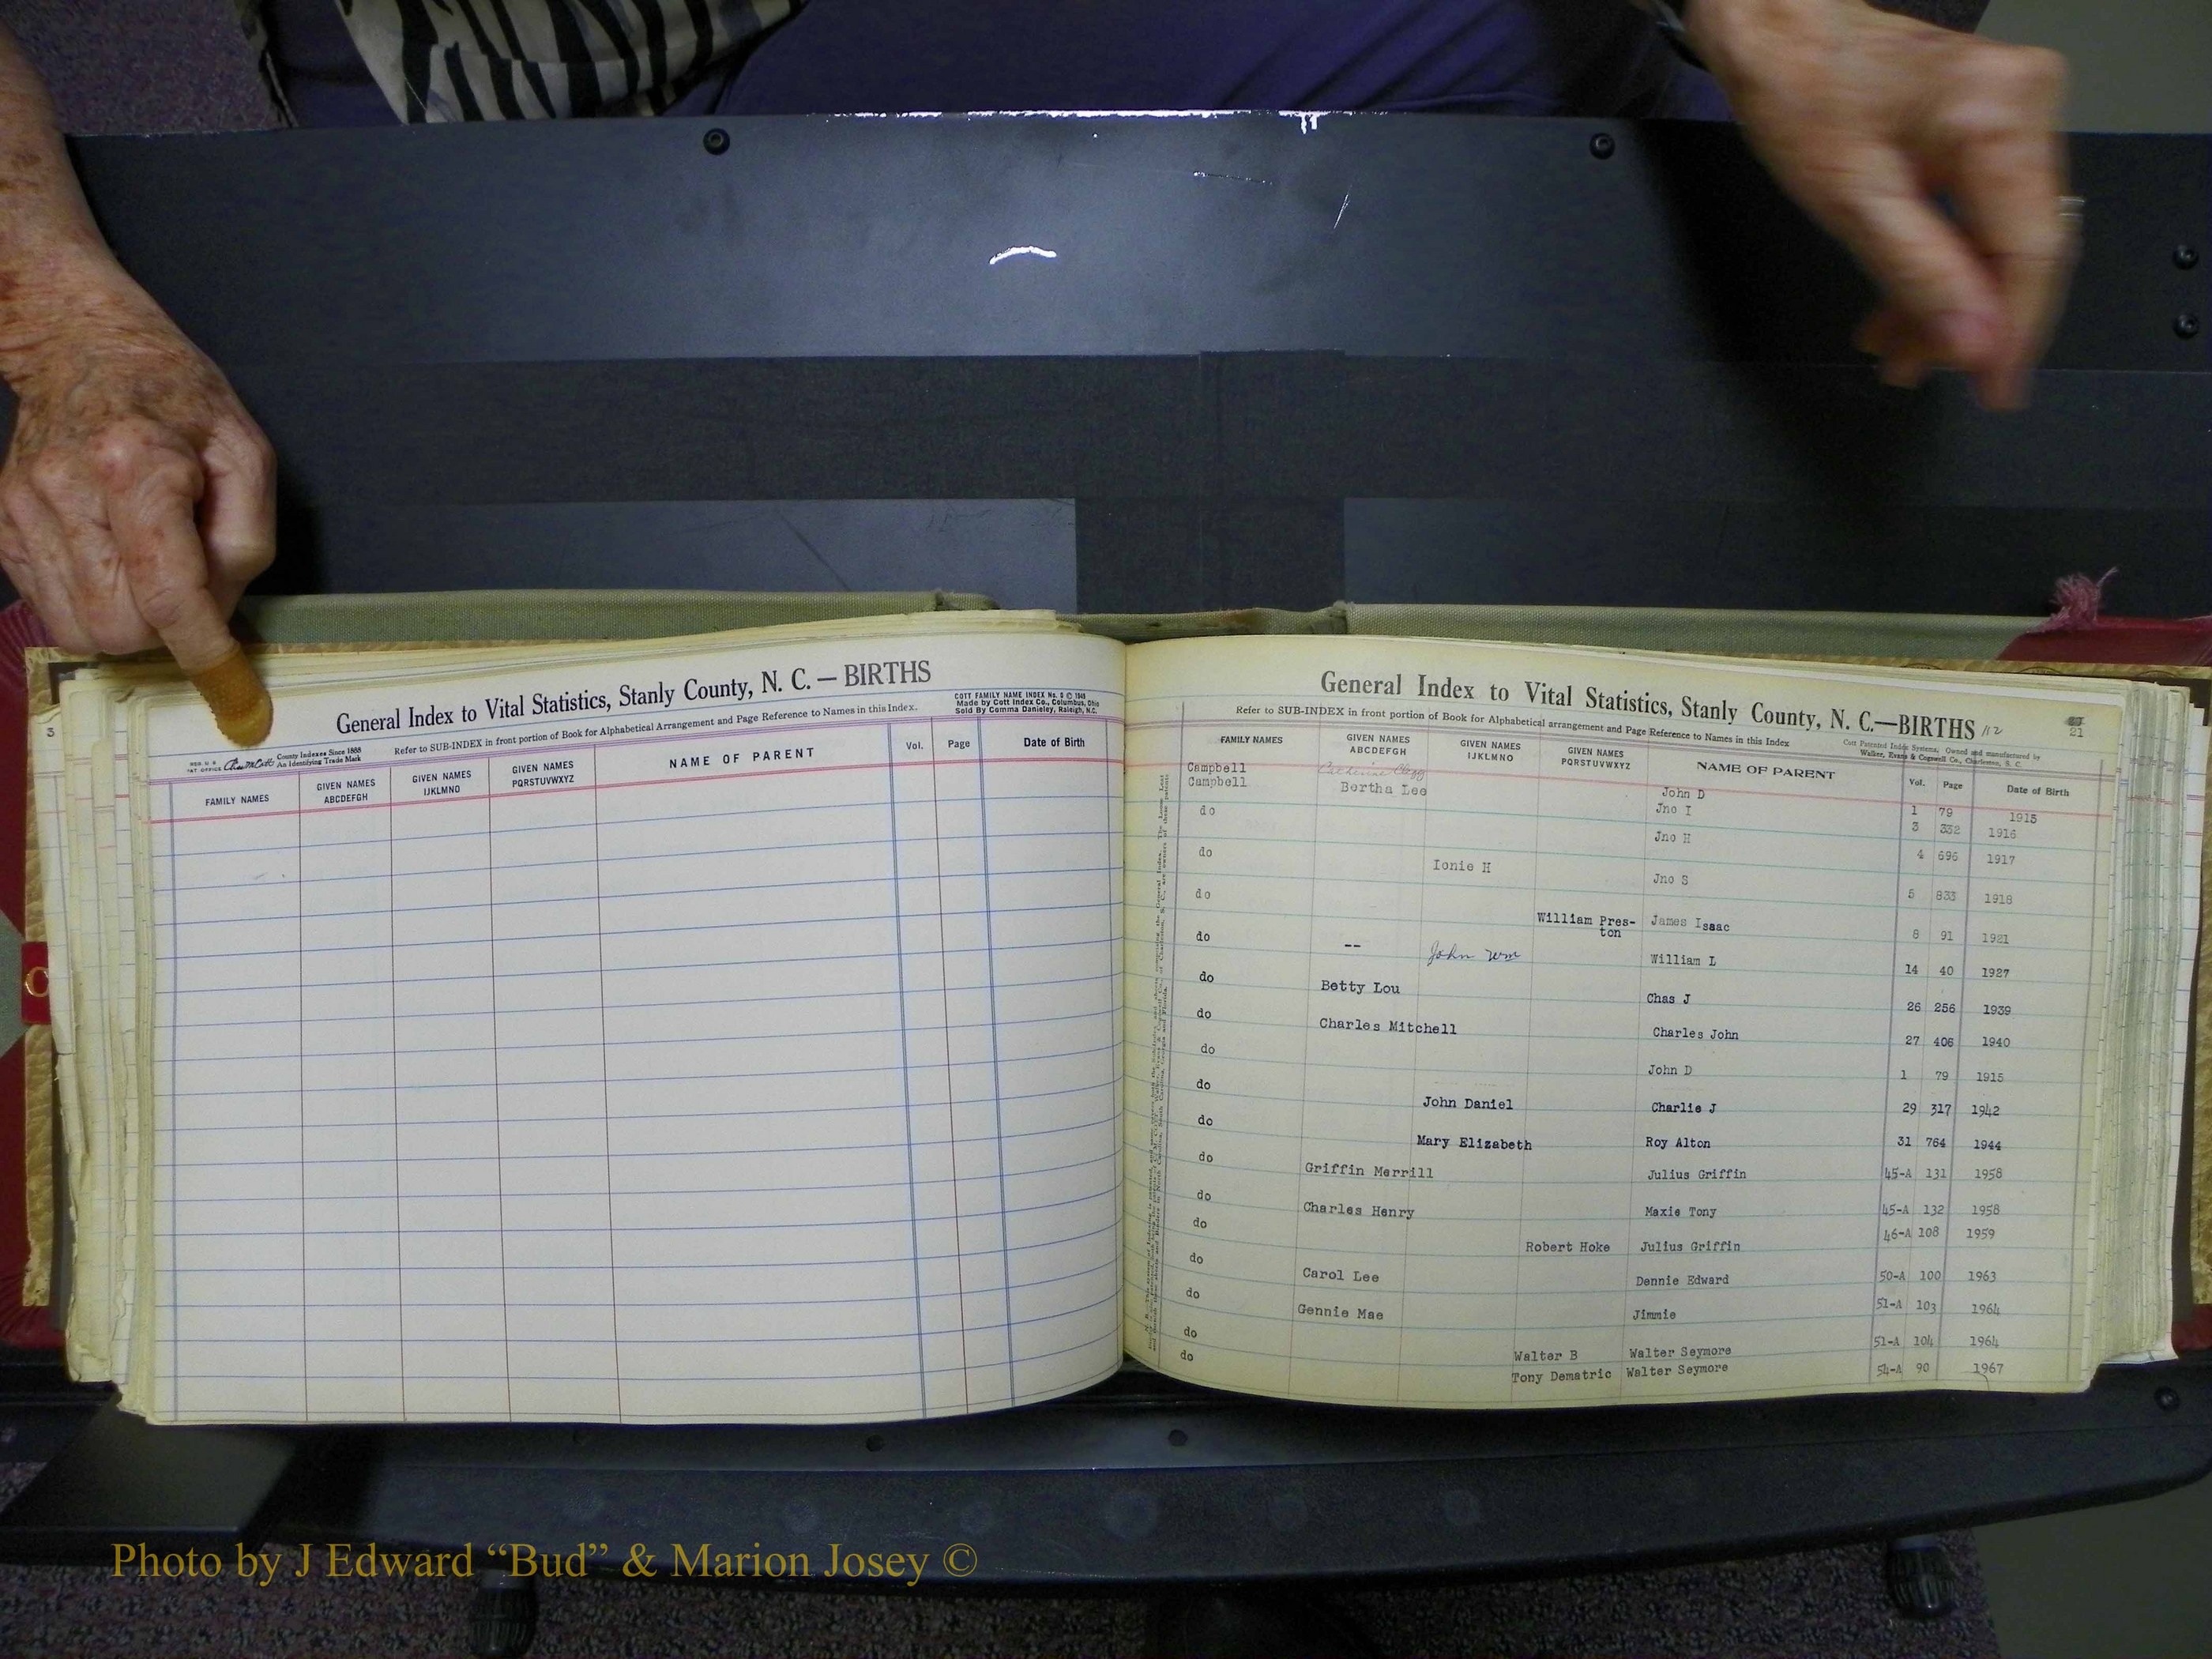 General Index to Vital Statistics, Stanly County, N. C. — BIRTHS
COTT FAMILY NAME INDEX No. 5 © 1945
Made by Cott Index Co., Columbus, Ohio
Sold By Comma Danieley, Raleigh, N.C.
Refer to SUB-INDEX in front portion of Book for Alphabetical Arrangement and Page Reference to Names in this Index.
County Indexes Since 1888
An Identifying Trade Mark
FAMILY NAMES GIVEN NAMES ABCDEFGH GIVEN NAMES IJKLMNO GIVEN NAMES PQRSTUVWXYZ NAME OF PARENT Vol. Page Date of Birth
3
General Index to Vital Statistics, Stanly County, N. C.—BIRTHS 112
21
Refer to SUB-INDEX in front portion of Book for Alphabetical arrangement and Page Reference to Names in this Index
Cott Patented Index Systems, Owned and manufactured by
Walker, Evans & Cogswell Co., Charleston, S. C.
FAMILY NAMES GIVEN NAMES ABCDEFGH GIVEN NAMES IJKLMNO GIVEN NAMES PQRSTUVWXYZ NAME OF PARENT Vol. Page Date of Birth
Campbell Catherine John D 1 79 1915
Campbell Bertha Lee Jno I 3 332 1916
do Jno H 4 696 1917
do Ionie H Jno S 5 833 1918
do William Pres-
ton James Isaac 8 91 1921
do -- John Wm William L 14 40 1927
do Betty Lou Chas J 26 256 1939
do Charles Mitchell Charles John 27 406 1940
do John D 1 79 1915
do John Daniel Charlie J 29 317 1942
do Mary Elizabeth Roy Alton 31 764 1944
do Griffin Merrill Julius Griffin 45-A 131 1958
do Charles Henry Maxie Tony 45-A 132 1958
do Robert Hoke Julius Griffin 46-A 108 1959
do Carol Lee Dennie Edward 50-A 100 1963
do Gennie Mae Jimmie 51-A 103 1964
do Walter B Walter Seymore 51-A 104 1964
do Tony Dematric Walter Seymore 54-A 90 1967
Photo by J Edward “Bud” & Marion Josey ©